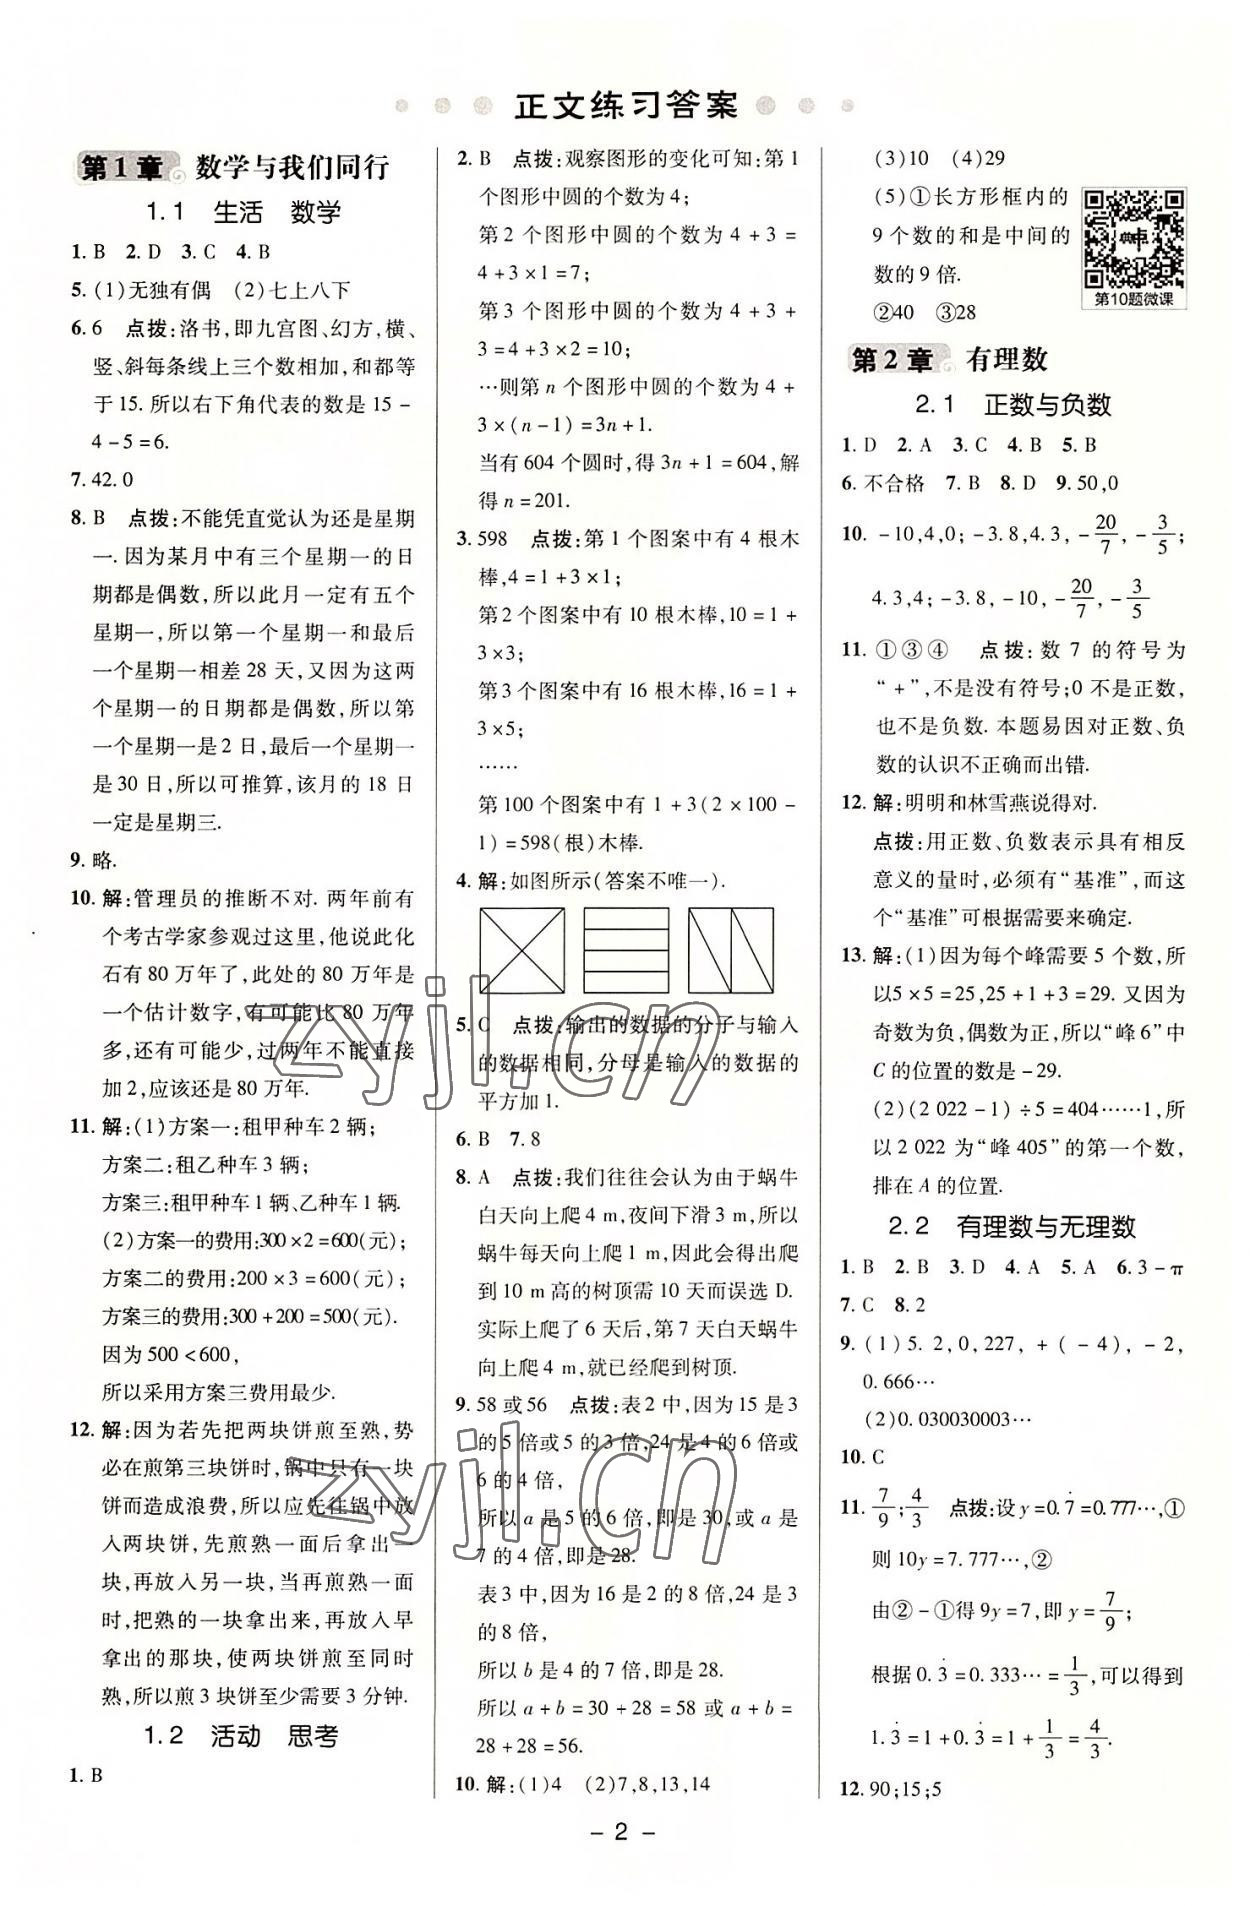 正文练习答案
第1章 数学与我们同行
1.1 生活 数学
1. B 2. D 3. C 4. B
5. (1)无独有偶 (2)七上八下
6. 6 点拨:洛书,即九宫图、幻方,横、
竖、斜每条线上三个数相加,和都等
于15. 所以右下角代表的数是15-
4-5=6.
7. 42. 0
8. B 点拨:不能凭直觉认为还是星期
一. 因为某月中有三个星期一的日
期都是偶数,所以此月一定有五个
星期一,所以第一个星期一和最后
一个星期一相差28天,又因为这两
个星期一的日期都是偶数,所以第
一个星期一是2日,最后一个星期一
是30日,所以可推算,该月的18日
一定是星期三.
9. 略.
10. 解:管理员的推断不对. 两年前有
个考古学家参观过这里,他说此化
石有80万年了,此处的80万年是
一个估计数字,有可能比80万年
多,还有可能少,过两年不能直接
加2,应该还是80万年.
11. 解:(1)方案一:租甲种车2辆;
方案二:租乙种车3辆;
方案三:租甲种车1辆、乙种车1辆.
(2)方案一的费用:300×2=600(元);
方案二的费用:200×3=600(元);
方案三的费用:300+200=500(元).
因为500<600,
所以采用方案三费用最少.
12. 解:因为若先把两块饼煎至熟,势
必在煎第三块饼时,锅中只有一块
饼而造成浪费,所以应先往锅中放
入两块饼,先煎熟一面后拿出一
块,再放入另一块,当再煎熟一面
时,把熟的一块拿出来,再放入早
拿出的那块,使两块饼煎至同时
熟,所以煎3块饼至少需要3分钟.
1.2 活动 思考
1. B
2. B 点拨:观察图形的变化可知:第1
个图形中圆的个数为4;
第2个图形中圆的个数为4+3=
4+3×1=7;
第3个图形中圆的个数为4+3+
3=4+3×2=10;
…则第n个图形中圆的个数为4+
3×(n-1)=3n+1.
当有604个圆时,得3n+1=604,解
得n=201.
3. 598 点拨:第1个图案中有4根木
棒,4=1+3×1;
第2个图案中有10根木棒,10=1+
3×3;
第3个图案中有16根木棒,16=1+
3×5;
……
第100个图案中有1+3(2×100-
1)=598(根)木棒.
4. 解:如图所示(答案不唯一).
5. C 点拨:输出的数据的分子与输入
的数据相同,分母是输入的数据的
平方加1.
6. B 7. 8
8. A 点拨:我们往往会认为由于蜗牛
白天向上爬4 m,夜间下滑3 m,所以
蜗牛每天向上爬1 m,因此会得出爬
到10 m高的树顶需10天而误选D.
实际上爬了6天后,第7天白天蜗牛
向上爬4 m,就已经爬到树顶.
9. 58或56 点拨:表2中,因为15是3
的5倍或5的3倍,24是4的6倍或
6的4倍,
所以a是5的6倍,即是30,或a是
7的4倍,即是28.
表3中,因为16是2的8倍,24是3
的8倍,
所以b是4的7倍,即是28.
所以a+b=30+28=58或a+b=
28+28=56.
10. 解:(1)4 (2)7,8,13,14
(3)10 (4)29
(5)①长方形框内的
9个数的和是中间的
数的9倍.
②40 ③28
典点
第10题微课
第2章 有理数
2.1 正数与负数
1. D 2. A 3. C 4. B 5. B
6. 不合格 7. B 8. D 9. 50,0
10. -10,4,0; -3.8,4.3, -20/7, -3/5;
4.3,4; -3.8, -10, -20/7, -3/5
11. ①③④ 点拨:数7的符号为
“+”,不是没有符号;0不是正数,
也不是负数. 本题易因对正数、负
数的认识不正确而出错.
12. 解:明明和林雪燕说得对.
点拨:用正数、负数表示具有相反
意义的量时,必须有“基准”,而这
个“基准”可根据需要来确定.
13. 解:(1)因为每个峰需要5个数,所
以5×5=25,25+1+3=29. 又因为
奇数为负,偶数为正,所以“峰6”中
C的位置的数是-29.
(2)(2 022-1)÷5=404……1,所
以2 022为“峰405”的第一个数,
排在A的位置.
2.2 有理数与无理数
1. B 2. B 3. D 4. A 5. A 6. 3-π
7. C 8. 2
9. (1)5. 2,0,227, +(-4), -2,
0. 666…
(2)0. 030030003…
10. C
11. 7/9;4/3 点拨:设y=0.7̇=0.777…,①
则10y=7.777…,②
由②-①得9y=7,即y=7/9;
根据0.3̇=0.333…=1/3,可以得到
1.3̇=1+0.3̇=1+1/3=4/3.
12. 90;15;5
- 2 -
zyjl.cn
zyjl.cn